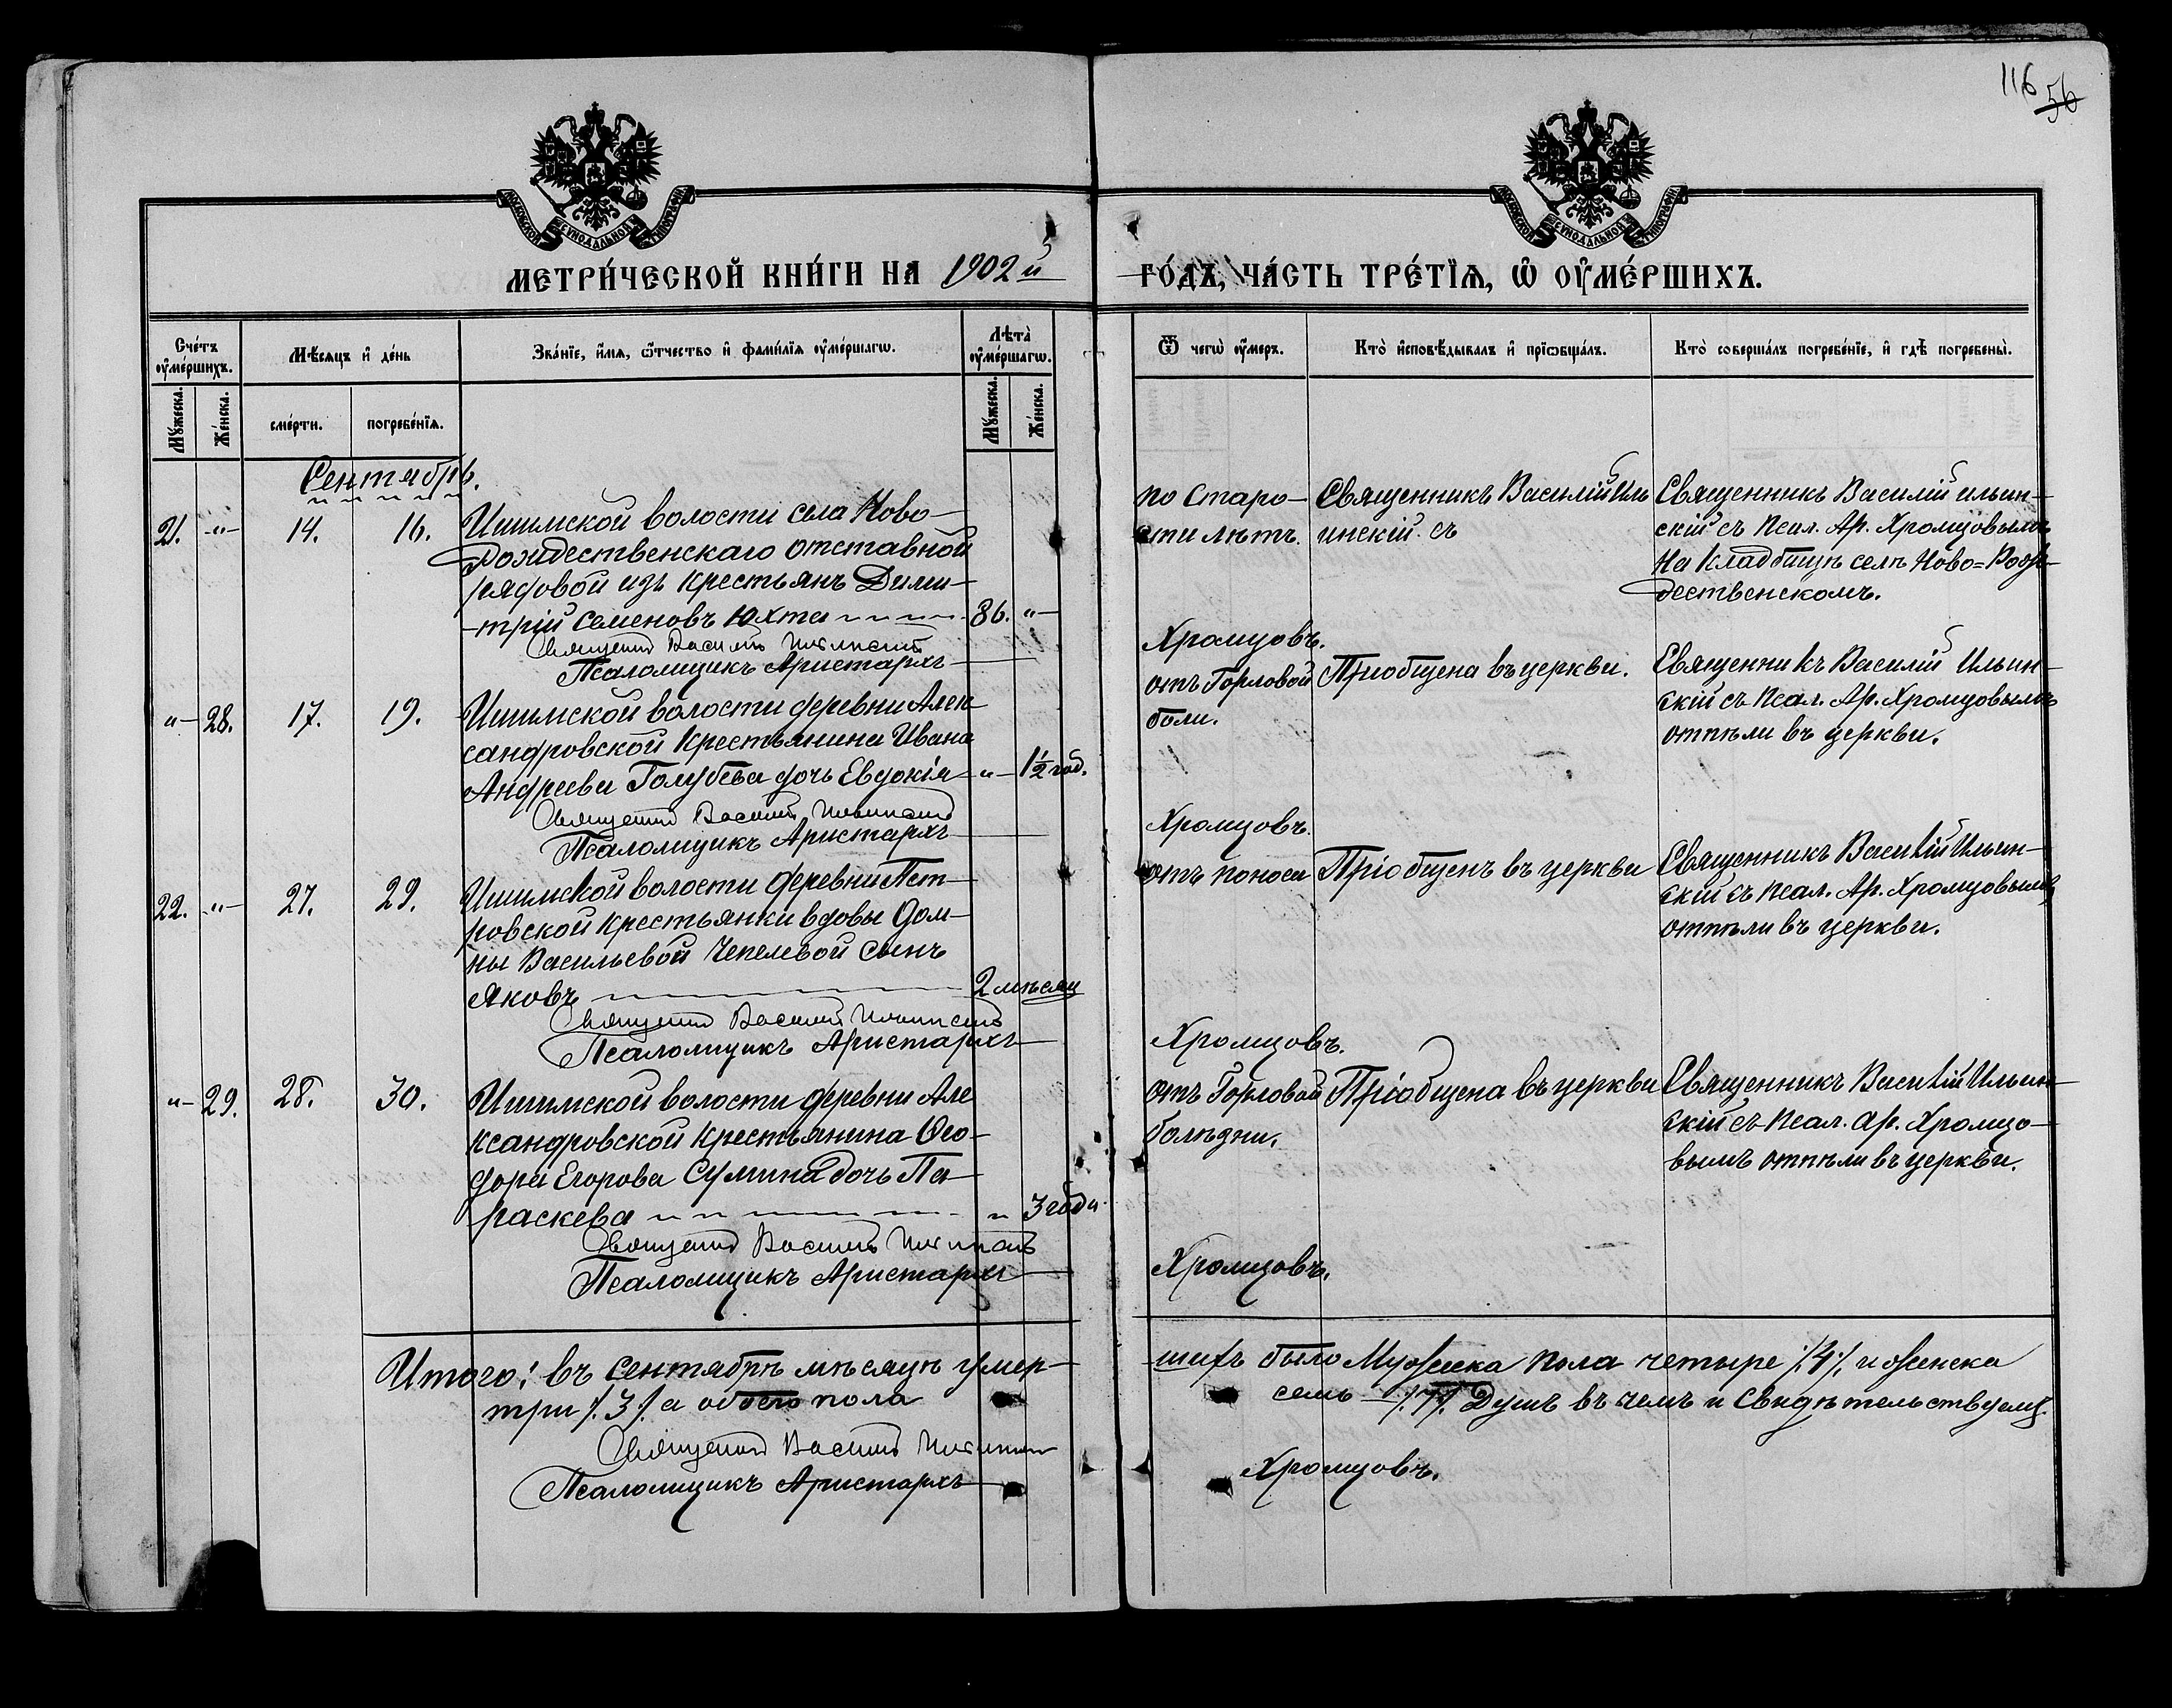 116 56
МОСКОВСКОЙ СѴНОДАЛЬНОЙ ТИПОГРАФІИ
МОСКОВСКОЙ СѴНОДАЛЬНОЙ ТИПОГРАФІИ
МЕТРИ́ЧЕСКОЙ КНИ́ГИ НА 1902й
ГО́ДЪ, ЧА́СТЬ ТРЕ́ТЇѦ, Ѽ ОУ҆МЕ́РШИХЪ.
Сче́тъ оу҆ме́ршихъ.
Мꙋ́жеска.
Же́нска.
Мѣ́сяцъ и҆ де́нь
сме́рти.
погребе́нїѧ.
Зва́нїе, и҆́мѧ, ѻ҆́тчество и҆ фами́лїѧ оу҆ме́ршагѡ.
Лѣта̀ оу҆ме́ршагѡ.
Мꙋ́жеска.
Же́нска.
Ѿ чегѡ̀ оу҆́меръ.
Кто̀ и҆сповѣ́дывалъ и҆ прїѡбща́лъ.
Кто̀ соверша́лъ погребе́нїе, и҆ гдѣ̀ погребены̀.
Сентябрь.
21. -"- 14. 16. Ишимской волости села Ново-
Рождественскаго отставной
рядовой изъ крестьянъ Дими-
-трій Семеновъ Юхта 86. "-
Священникъ Василій Ильинскій
Псаломщикъ Аристархъ
Хромцовъ.
по старо-
сти лѣтъ.
Священникъ Василій Иль
инскій. съ
Священникъ Василій Ильин-
скій съ псал. Ар. Хромцовымъ
На кладбищѣ селѣ Ново=Рож-
дественскомъ.
"- 28. 17. 19. Ишимской волости деревни Алек-
сандровской крестьянина Ивана
Андреева Голубева дочь Евдокія -"- 1½ год.
Священникъ Василій Ильинскій
Псаломщикъ Аристархъ
Хромцовъ.
отъ Горловой
боли.
Пріобщена въ церкви.
Священникъ Василій Ильин-
скій съ псал. Ар. Хромцовымъ
отпѣли въ церкви.
22. -"- 27. 29. Ишимской волости деревни Пет-
ровской крестьянки вдовы Дом-
ны Васильевой Чепелевой сынъ
Яковъ 2 мѣсяц
Священникъ Василій Ильинскій
Псаломщикъ Аристархъ
Хромцовъ.
отъ поноса
Пріобщенъ въ церкви
Священникъ Василій Ильин-
скій съ псал. Ар. Хромцовымъ
отпѣли въ церкви.
"- 29. 28. 30. Ишимской волости деревни Але
ксандровской крестьянина Ѳео-
дора Егорова Сумина дочь Па-
раскева " 3 года
Священникъ Василій Ильинскій
Псаломщикъ Аристархъ
Хромцовъ.
отъ Горловой
болѣзни.
Пріобщена въ церкви
Священникъ Василій Ильин-
скій съ псал. Ар. Хромцо-
вымъ отпѣли въ церкви.
Итого: въ сентябрѣ мѣсяцѣ умер-
шихъ было Мужеска пола четыре /.4/. и женска
три /.3/. а обоего пола
семь /.7/. Душъ въ чемъ и Свидѣтельствуемъ.
Священникъ Василій Ильинскій
Псаломщикъ Аристархъ
Хромцовъ.